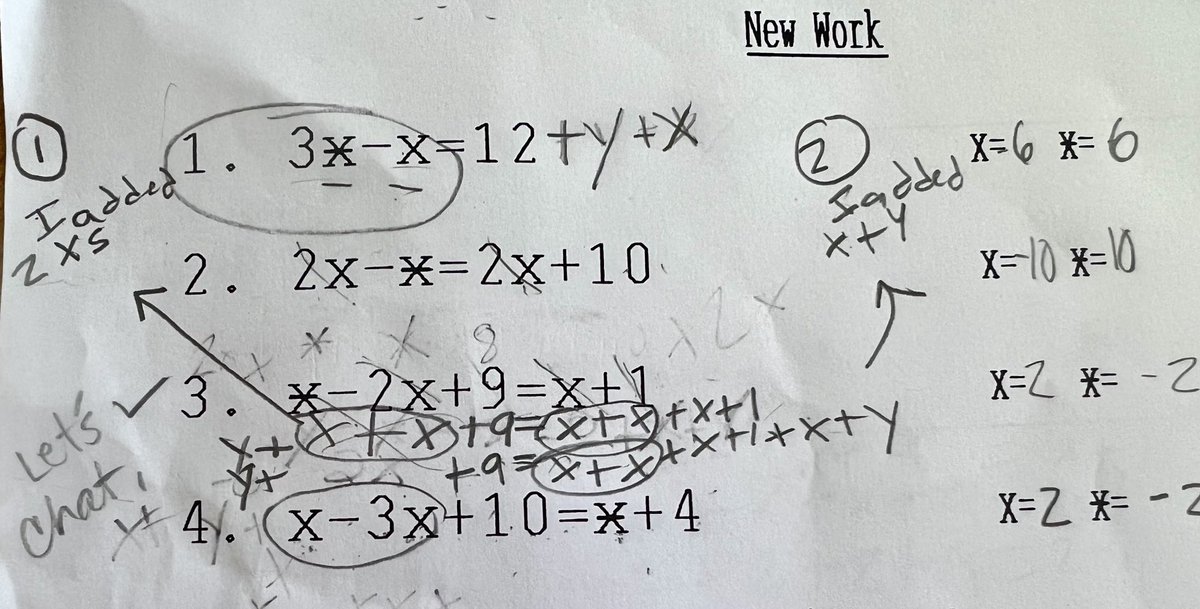 New Work
① 1. 3x-x=12+y+x
I added
2 xs
② x=6 x=6
I added
x+y
2. 2x-x=2x+10
x=-10 x=10
8
2x
3. x-2x+9=x+1
x=2 x=-2
Let's
chat,
y+ x+x +9=x+x+x+1
y+ +9=x+x+x+1+x+y
4. x-3x+10=x+4
x=2 x=-2